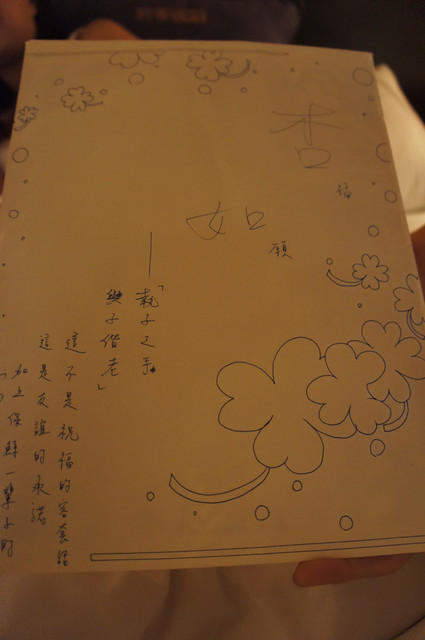 杏
福
如
願
——「執子之手
與子偕老」
這不是祝福的客套話
這是友誼的承諾
加上保鮮一輩子的